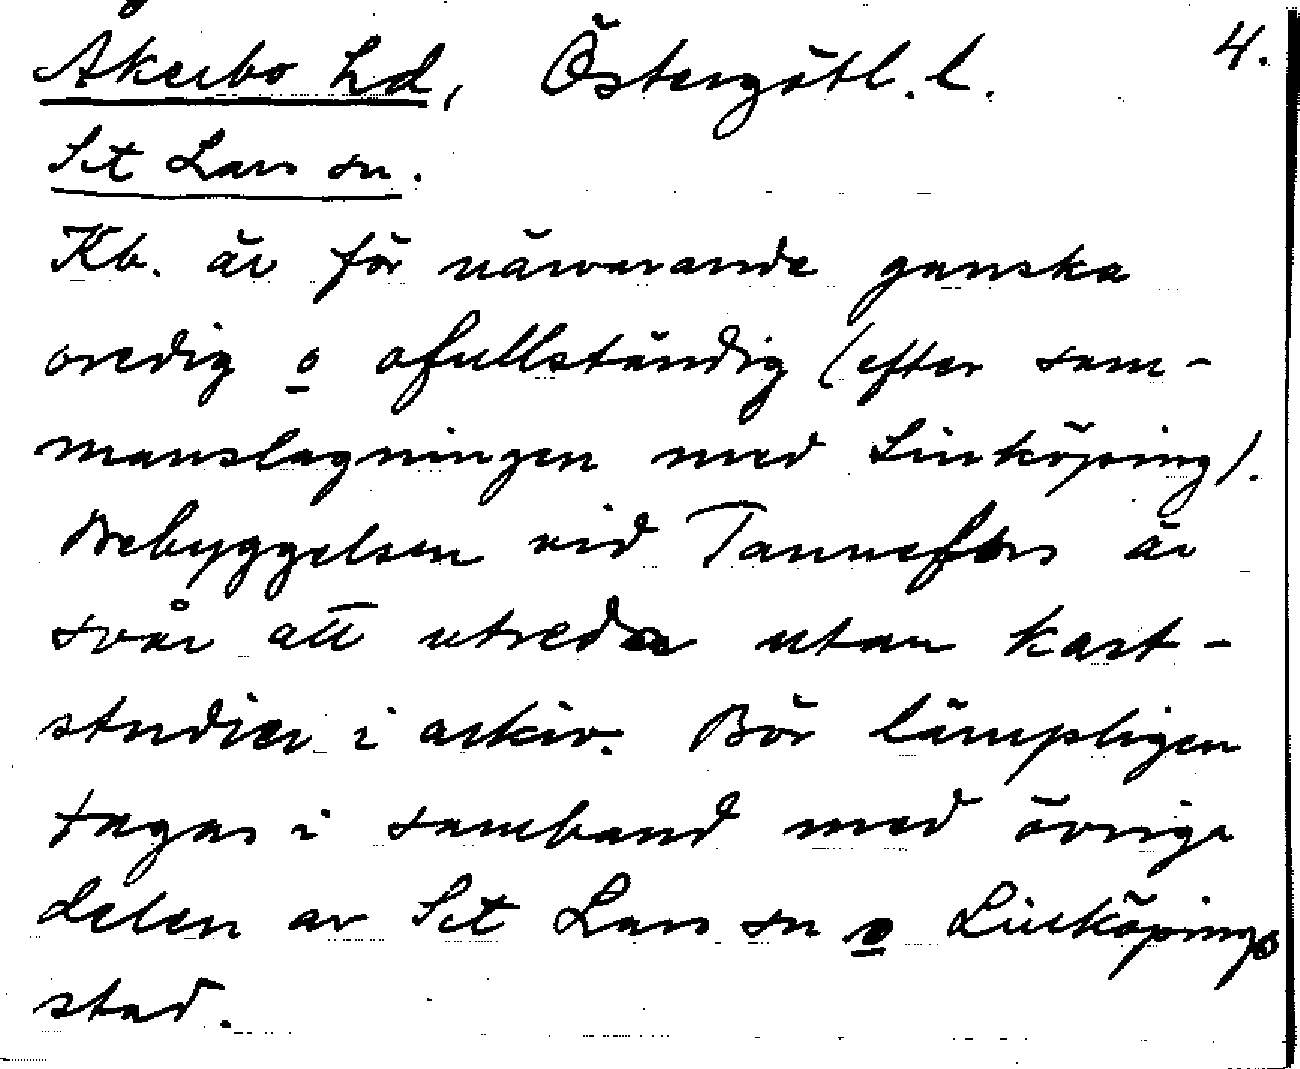 Åkerbo hd, Östergötl. l. 4.
S:t Lars sn.
Kb. är för närvarande ganska
oredig o ofullständig (efter sam-
manslagningen med Linköping).
Bebyggelsen vid Tannefors är
svår att utreda utan kart-
studier i arkiv. Bör lämpligen
tagas i samband med övriga
delen av S:t Lars sn o Linköpings
stad.